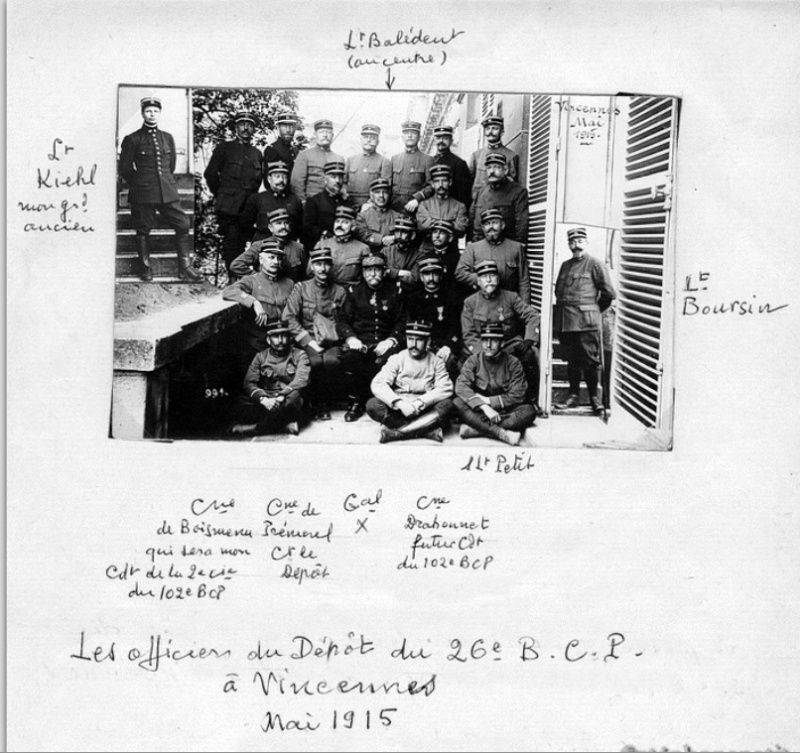 Lt Balédent
(au centre)
Vincennes
Mai
1915.
Lt
Kiehl
mon gd
ancien
Lt
Boursin
991
SLt Petit
Cne
de Boismenu
qui sera mon
Cdt de la 2e Cie
du 102e BCP
Cne de
Prémorel
Ct le
Dépôt
Gal
X
Cne
Drahonnet
futur Cdt
du 102e BCP
Les officiers du Dépôt du 26e B.C.P.
à Vincennes
Mai 1915